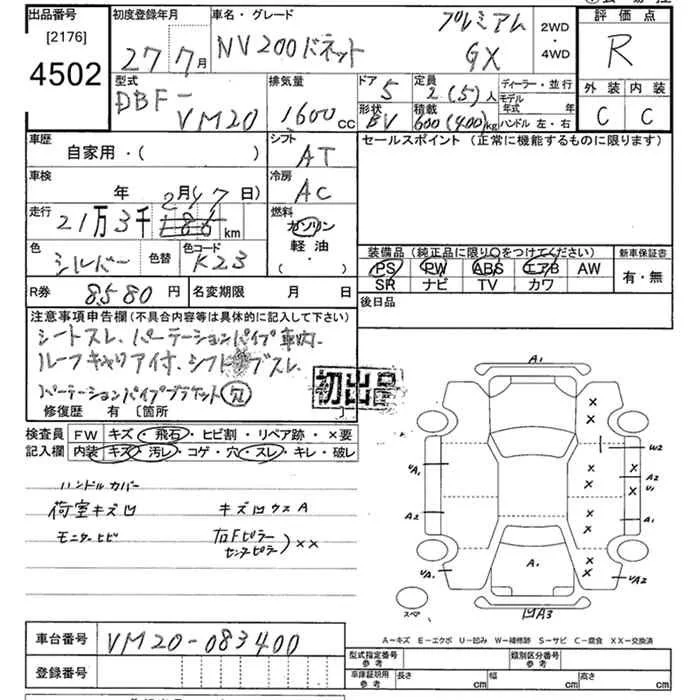 出品番号
[2176]
4502
初度登録年月
27 7月
車名・グレード
NV200バネット
プレミアム
GX
2WD
・
4WD
評価点
R
外装 内装
C C
型式
DBF-
VM20
排気量
1600cc
ドア 5
定員 2(5)人
形状 BV
積載 600(400)kg
ディーラー・並行
モデル年式 年
ハンドル 左・右
車歴
自家用・( )
シフト AT
車検
年 2月17日)
冷房 AC
走行
21万3千 km
燃料
ガソリン
軽油
( ・ )
色 シルバー 色替
色コード K23
セールスポイント(正常に機能するものに限ります)
装備品(純正品に限り○をつけてください)
PS PW ABS エアB AW
SR ナビ TV カワ
新車保証書
有・無
R券 8580円
名変期限 月 日
後日品
注意事項申告欄(不具合内容等は具体的に記入して下さい)
シートスレ、パーテーションパイプ車内、
ルーフキャリア付、シフトノブスレ、
パーテーションパイプブラケット穴
修復歴 有 〔箇所 〕
初出品
検査員記入欄
FW キズ・飛石・ヒビ割・リペア跡・×要
内装 キズ・汚レ・コゲ・穴・スレ・キレ・破レ
ハンドルカバー
荷室キズ凹 キズ凹ウスA
モニターヒビ 右Fピラー
センターピラー )××
A1
W2
UA1
A2
U1
A2
A1
UA1
A1
UA2
スペア
凹A3
A−キズ E−エクボ U−凹み W−補修跡 S−サビ C−腐食 XX−交換済
車台番号 VM20-083400
登録番号
型式指定番号 参考
類別区分番号 参考
車庫証明用 参考
長さ cm 幅 cm 高さ cm